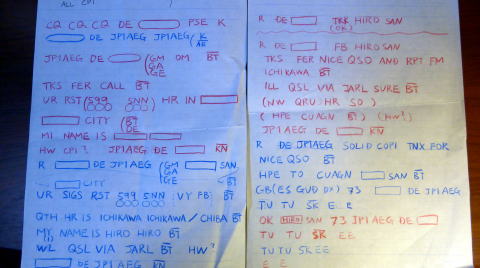 ALL CPI
CQ CQ CQ DE PSE K
DE JP1AEG JP1AEG / K
AR
JP1AEG DE / GM OM BT
GA
GE
TKS FER CALL BT
UR RST (599 5NN) HR IN
CITY (BT
DE
MI NAME IS
HW CPI? JP1AEG DE KN
R DE JP1AEG / GM SAN
GA
CITY GE BT
UR SIGS RST 599 5NN : VY FB: BT
QTH HR IS ICHIKAWA ICHIKAWA / CHIBA BT
MY NAME IS HIRO HIRO BT
(I)
WL QSL VIA JARL BT HW?
DE JP1AEG KN
R DE TKR HIRO SAN
(OK)
R DE FB HIRO SAN
TKS FER NICE QSO AND RPT FM
ICHIKAWA BT
ILL QSL VIA JARL SURE BT
(NW QRU HR SO)
(HPE CUAGN BT) (HW?)
JP1AEG DE KN
R DE JP1AEG SOLID COPI TNX FOR
NICE QSO BT
HPE TO CUAGN SAN BT
GB(ES GUD DX) 73 DE JP1AEG
TU TU SK E E
OK HIRO SAN 73 JP1AEG DE
TU TU SK EE
TU TU SK EE
E E